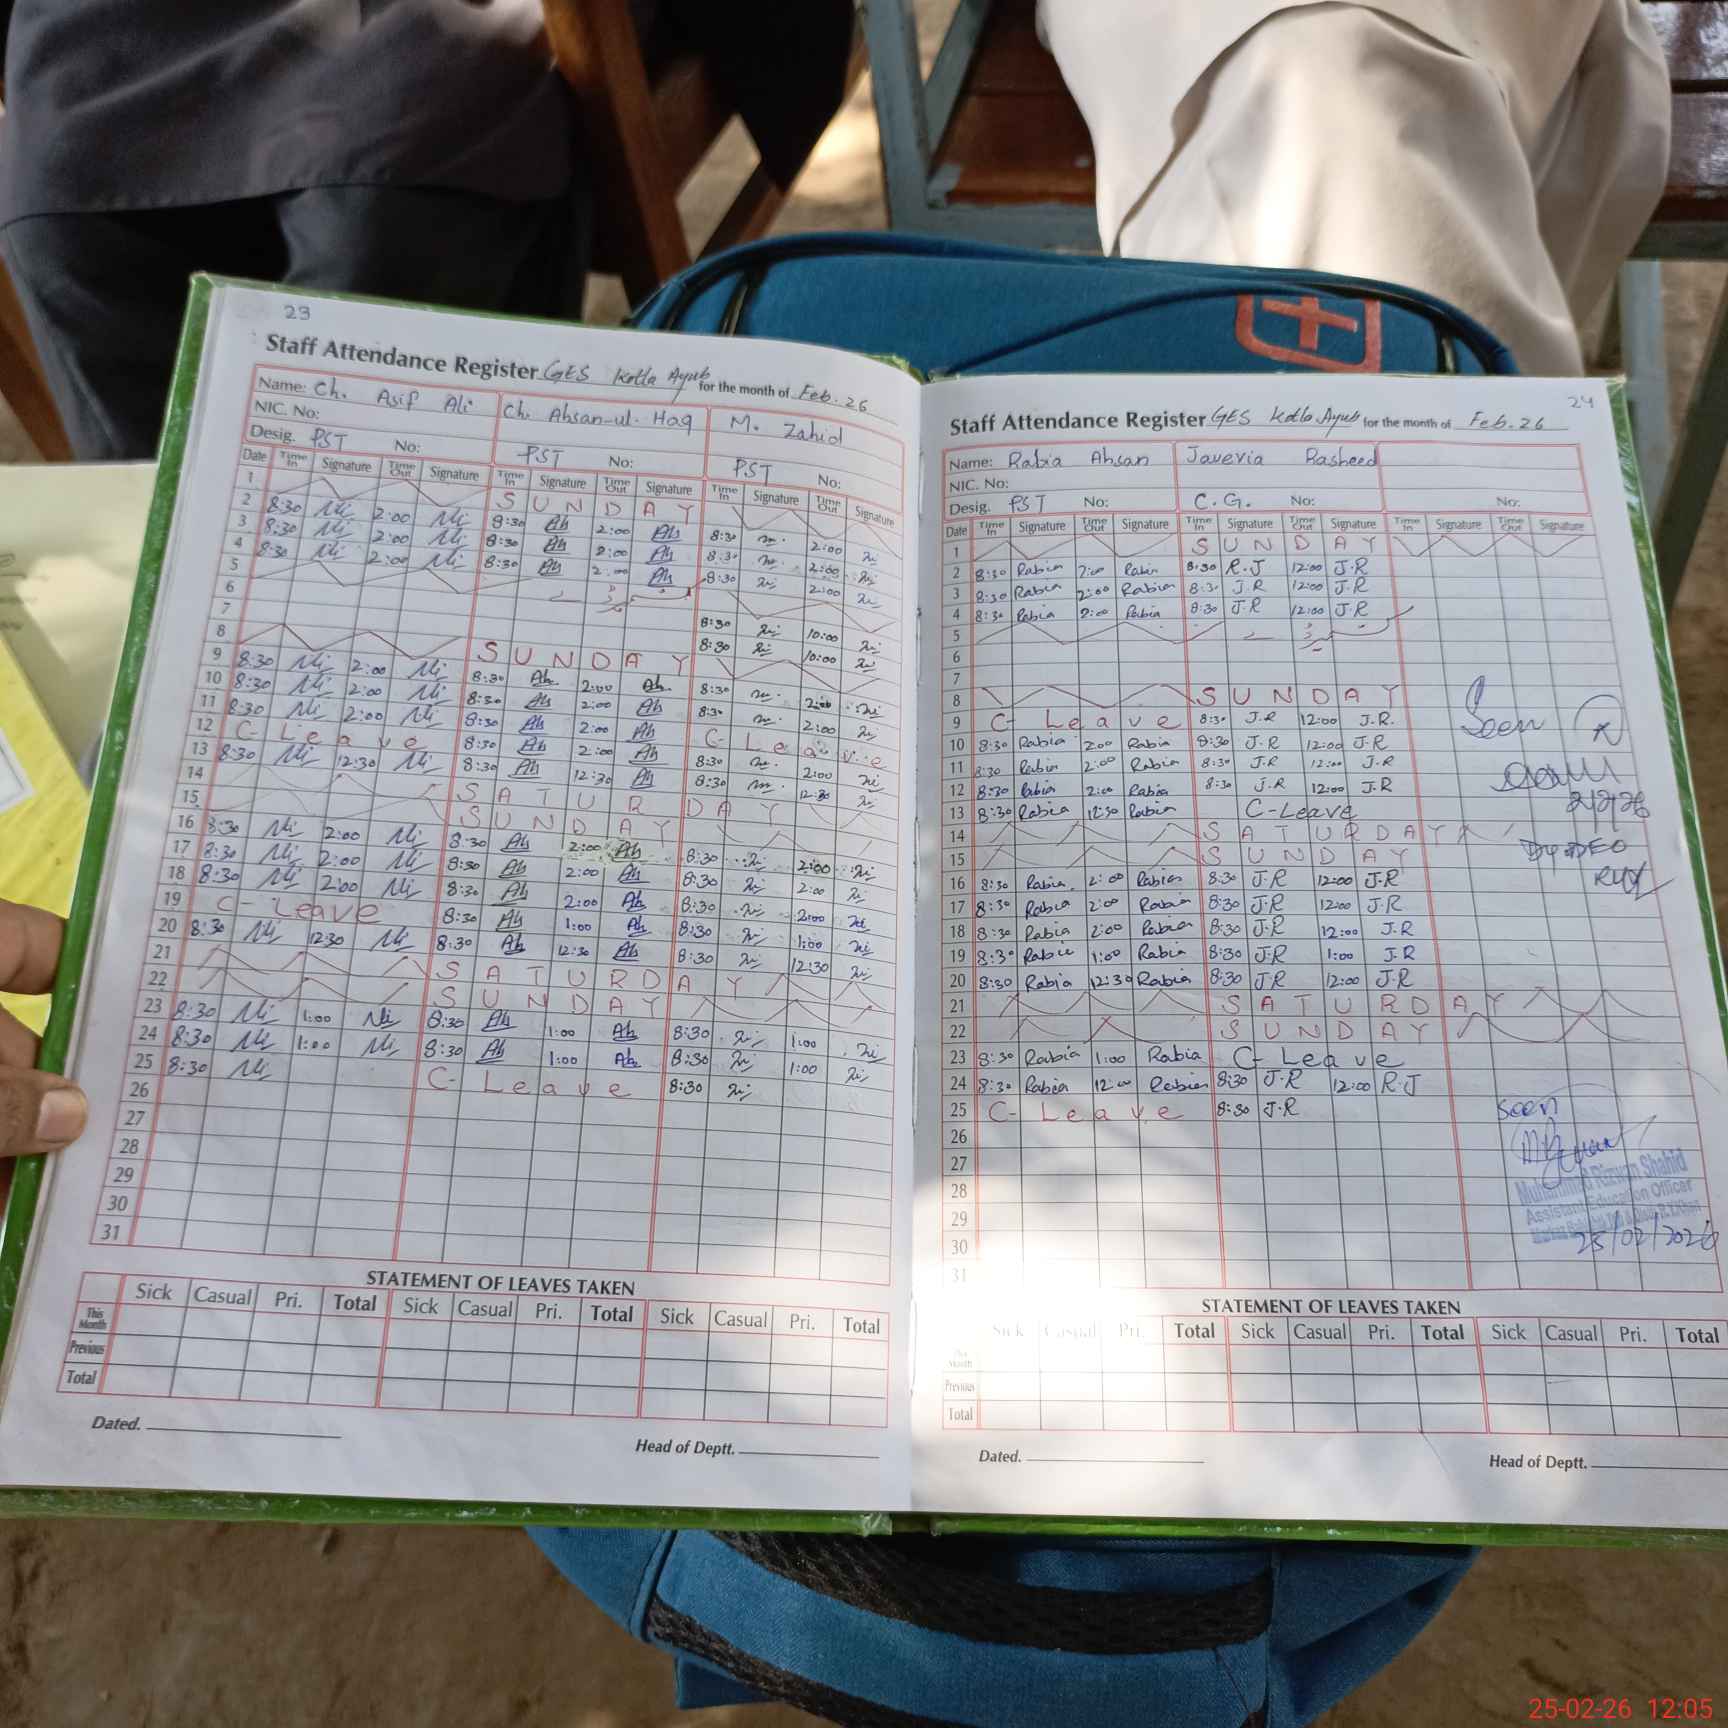 23
Staff Attendance Register GES Kotla Ayub for the month of Feb. 26
Name: Ch. Asif Ali Ch. Ahsan-ul-Haq M. Zahid
NIC. No:
Desig. PST No: PST No: PST No:
Date Time In Signature Time Out Signature Time In Signature Time Out Signature Time In Signature Time Out Signature
1 SUNDAY
2 8:30 2:00 8:30 Ah 2:00 Ah 8:30 2:00
3 8:30 2:00 8:30 Ah 2:00 Ah 8:30 2:00
4 8:30 2:00 8:30 Ah 2:00 Ah 8:30 2:00
5
6 8:30 10:00
7 8:30 10:00
8 SUNDAY
9 8:30 2:00 8:30 Ah 2:00 Ah 8:30 2:00
10 8:30 2:00 8:30 Ah 2:00 Ah 8:30 2:00
11 8:30 2:00 8:30 Ah 2:00 Ah C-Leave
12 C-Leave 8:30 Ah 2:00 Ah 8:30 2:00
13 8:30 12:30 8:30 Ah 12:30 Ah 8:30 12:30
14 SATURDAY
15 SUNDAY
16 8:30 2:00 8:30 Ah 2:00 Ah 8:30 2:00
17 8:30 2:00 8:30 Ah 2:00 Ah 8:30 2:00
18 8:30 2:00 8:30 Ah 2:00 Ah 8:30 2:00
19 C-Leave 8:30 Ah 1:00 Ah 8:30 1:00
20 8:30 12:30 8:30 Ah 12:30 Ah 8:30 12:30
21 SATURDAY
22 SUNDAY
23 8:30 1:00 8:30 Ah 1:00 Ah 8:30 1:00
24 8:30 1:00 8:30 Ah 1:00 Ah 8:30 1:00
25 8:30 C-Leave 8:30
26
27
28
29
30
31
STATEMENT OF LEAVES TAKEN
Sick Casual Pri. Total Sick Casual Pri. Total Sick Casual Pri. Total
This Month
Previous
Total
Dated.
Head of Deptt.
24
Staff Attendance Register GES Kotla Ayub for the month of Feb. 26
Name: Rabia Ahsan Javevia Rasheed
NIC. No:
Desig. PST No: C.G. No: No:
Date Time In Signature Time Out Signature Time In Signature Time Out Signature Time In Signature Time Out Signature
1 SUNDAY
2 8:30 Rabia 2:00 Rabia 8:30 R.J 12:00 J.R
3 8:30 Rabia 2:00 Rabia 8:30 J.R 12:00 J.R
4 8:30 Rabia 2:00 Rabia 8:30 J.R 12:00 J.R
5
6
7
8 SUNDAY
9 C-Leave 8:30 J.R 12:00 J.R.
10 8:30 Rabia 2:00 Rabia 8:30 J.R 12:00 J.R
11 8:30 Rabia 2:00 Rabia 8:30 J.R 12:00 J.R
12 8:30 Rabia 2:00 Rabia 8:30 J.R 12:00 J.R
13 8:30 Rabia 12:30 Rabia C-Leave
14 SATURDAY
15 SUNDAY
16 8:30 Rabia 2:00 Rabia 8:30 J.R 12:00 J.R
17 8:30 Rabia 2:00 Rabia 8:30 J.R 12:00 J.R
18 8:30 Rabia 2:00 Rabia 8:30 J.R 12:00 J.R
19 8:30 Rabia 1:00 Rabia 8:30 J.R 1:00 J.R
20 8:30 Rabia 12:30 Rabia 8:30 J.R 12:00 J.R
21 SATURDAY
22 SUNDAY
23 8:30 Rabia 1:00 Rabia C-Leave
24 8:30 Rabia 12:00 Rabia 8:30 J.R 12:00 R.J
25 C-Leave 8:30 J.R
26
27
28
29
30
31
Seen
Dy DEO
RYK
Seen
Muhammad Rizwan Shahid
Assistant Education Officer
25/02/2026
STATEMENT OF LEAVES TAKEN
Sick Casual Pri. Total Sick Casual Pri. Total Sick Casual Pri. Total
This Month
Previous
Total
Dated.
Head of Deptt.
25-02-26 12:05